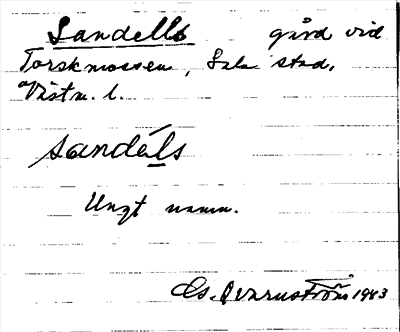 Sandells gård vid
Torskmossen, Sala stad,
Västm. l.
sandéls
Ungt namn.
Gs. Qvarnström 1943